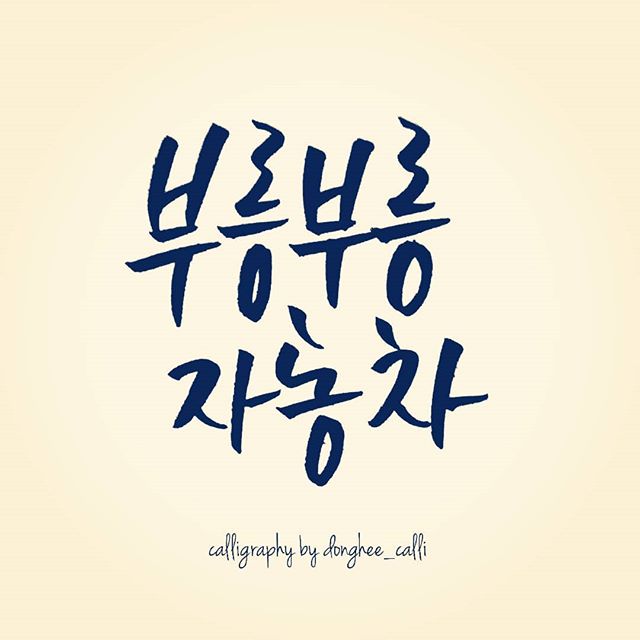 부릉부릉
자동차
calligraphy by donghee_calli